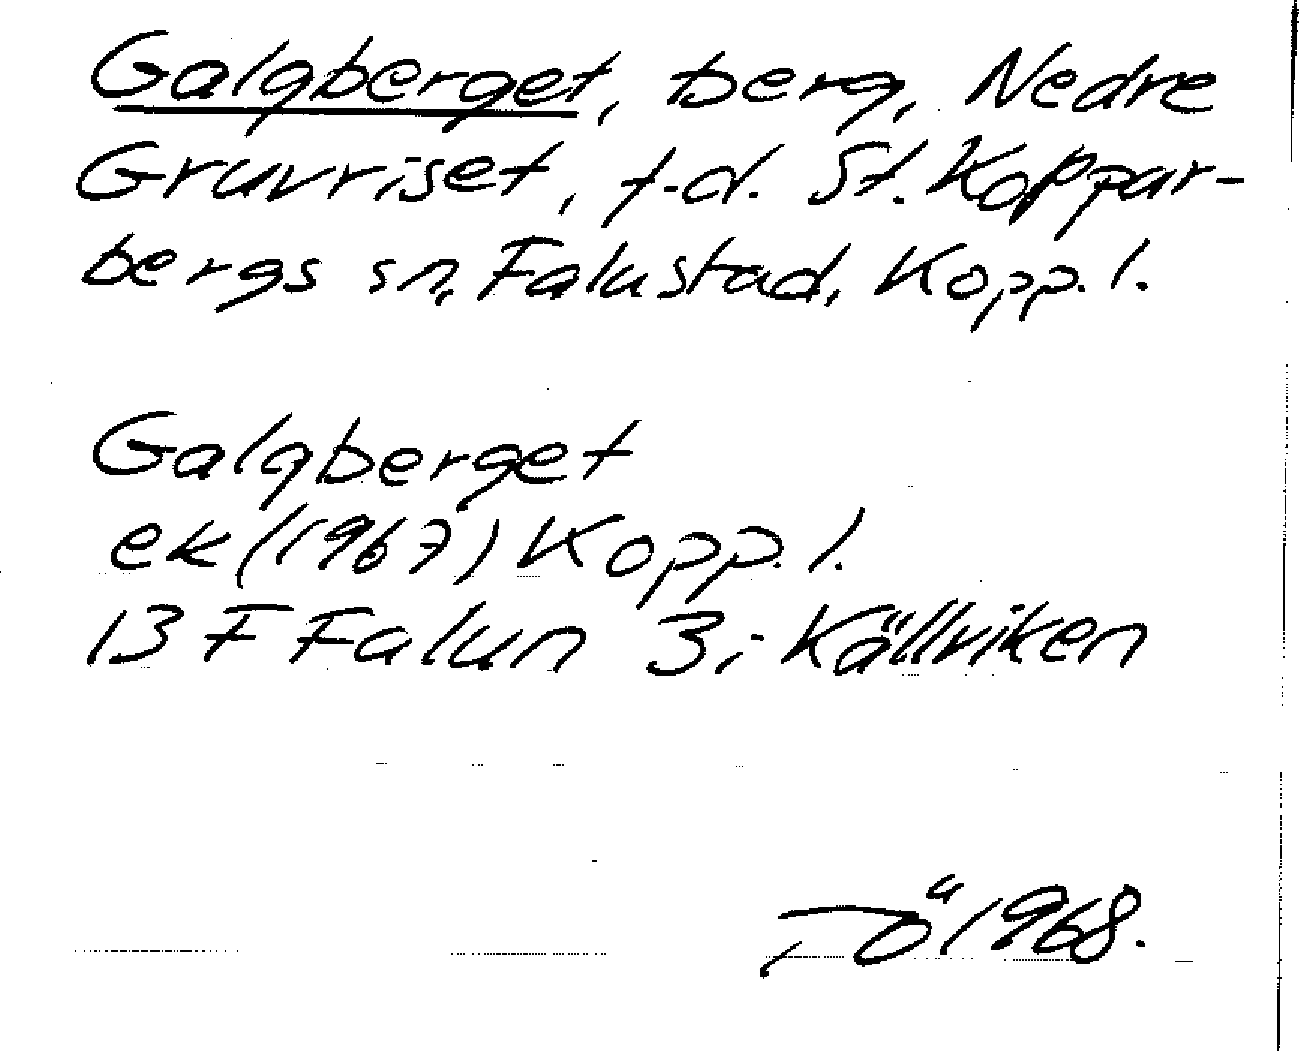 Galgberget, berg, Nedre
Gruvriset, f.d. St. Koppar-
bergs sn, Falu stad, Kopp. l.
Galgberget
ek (1967) Kopp. l.
13 F Falun 3i Källviken
1968.